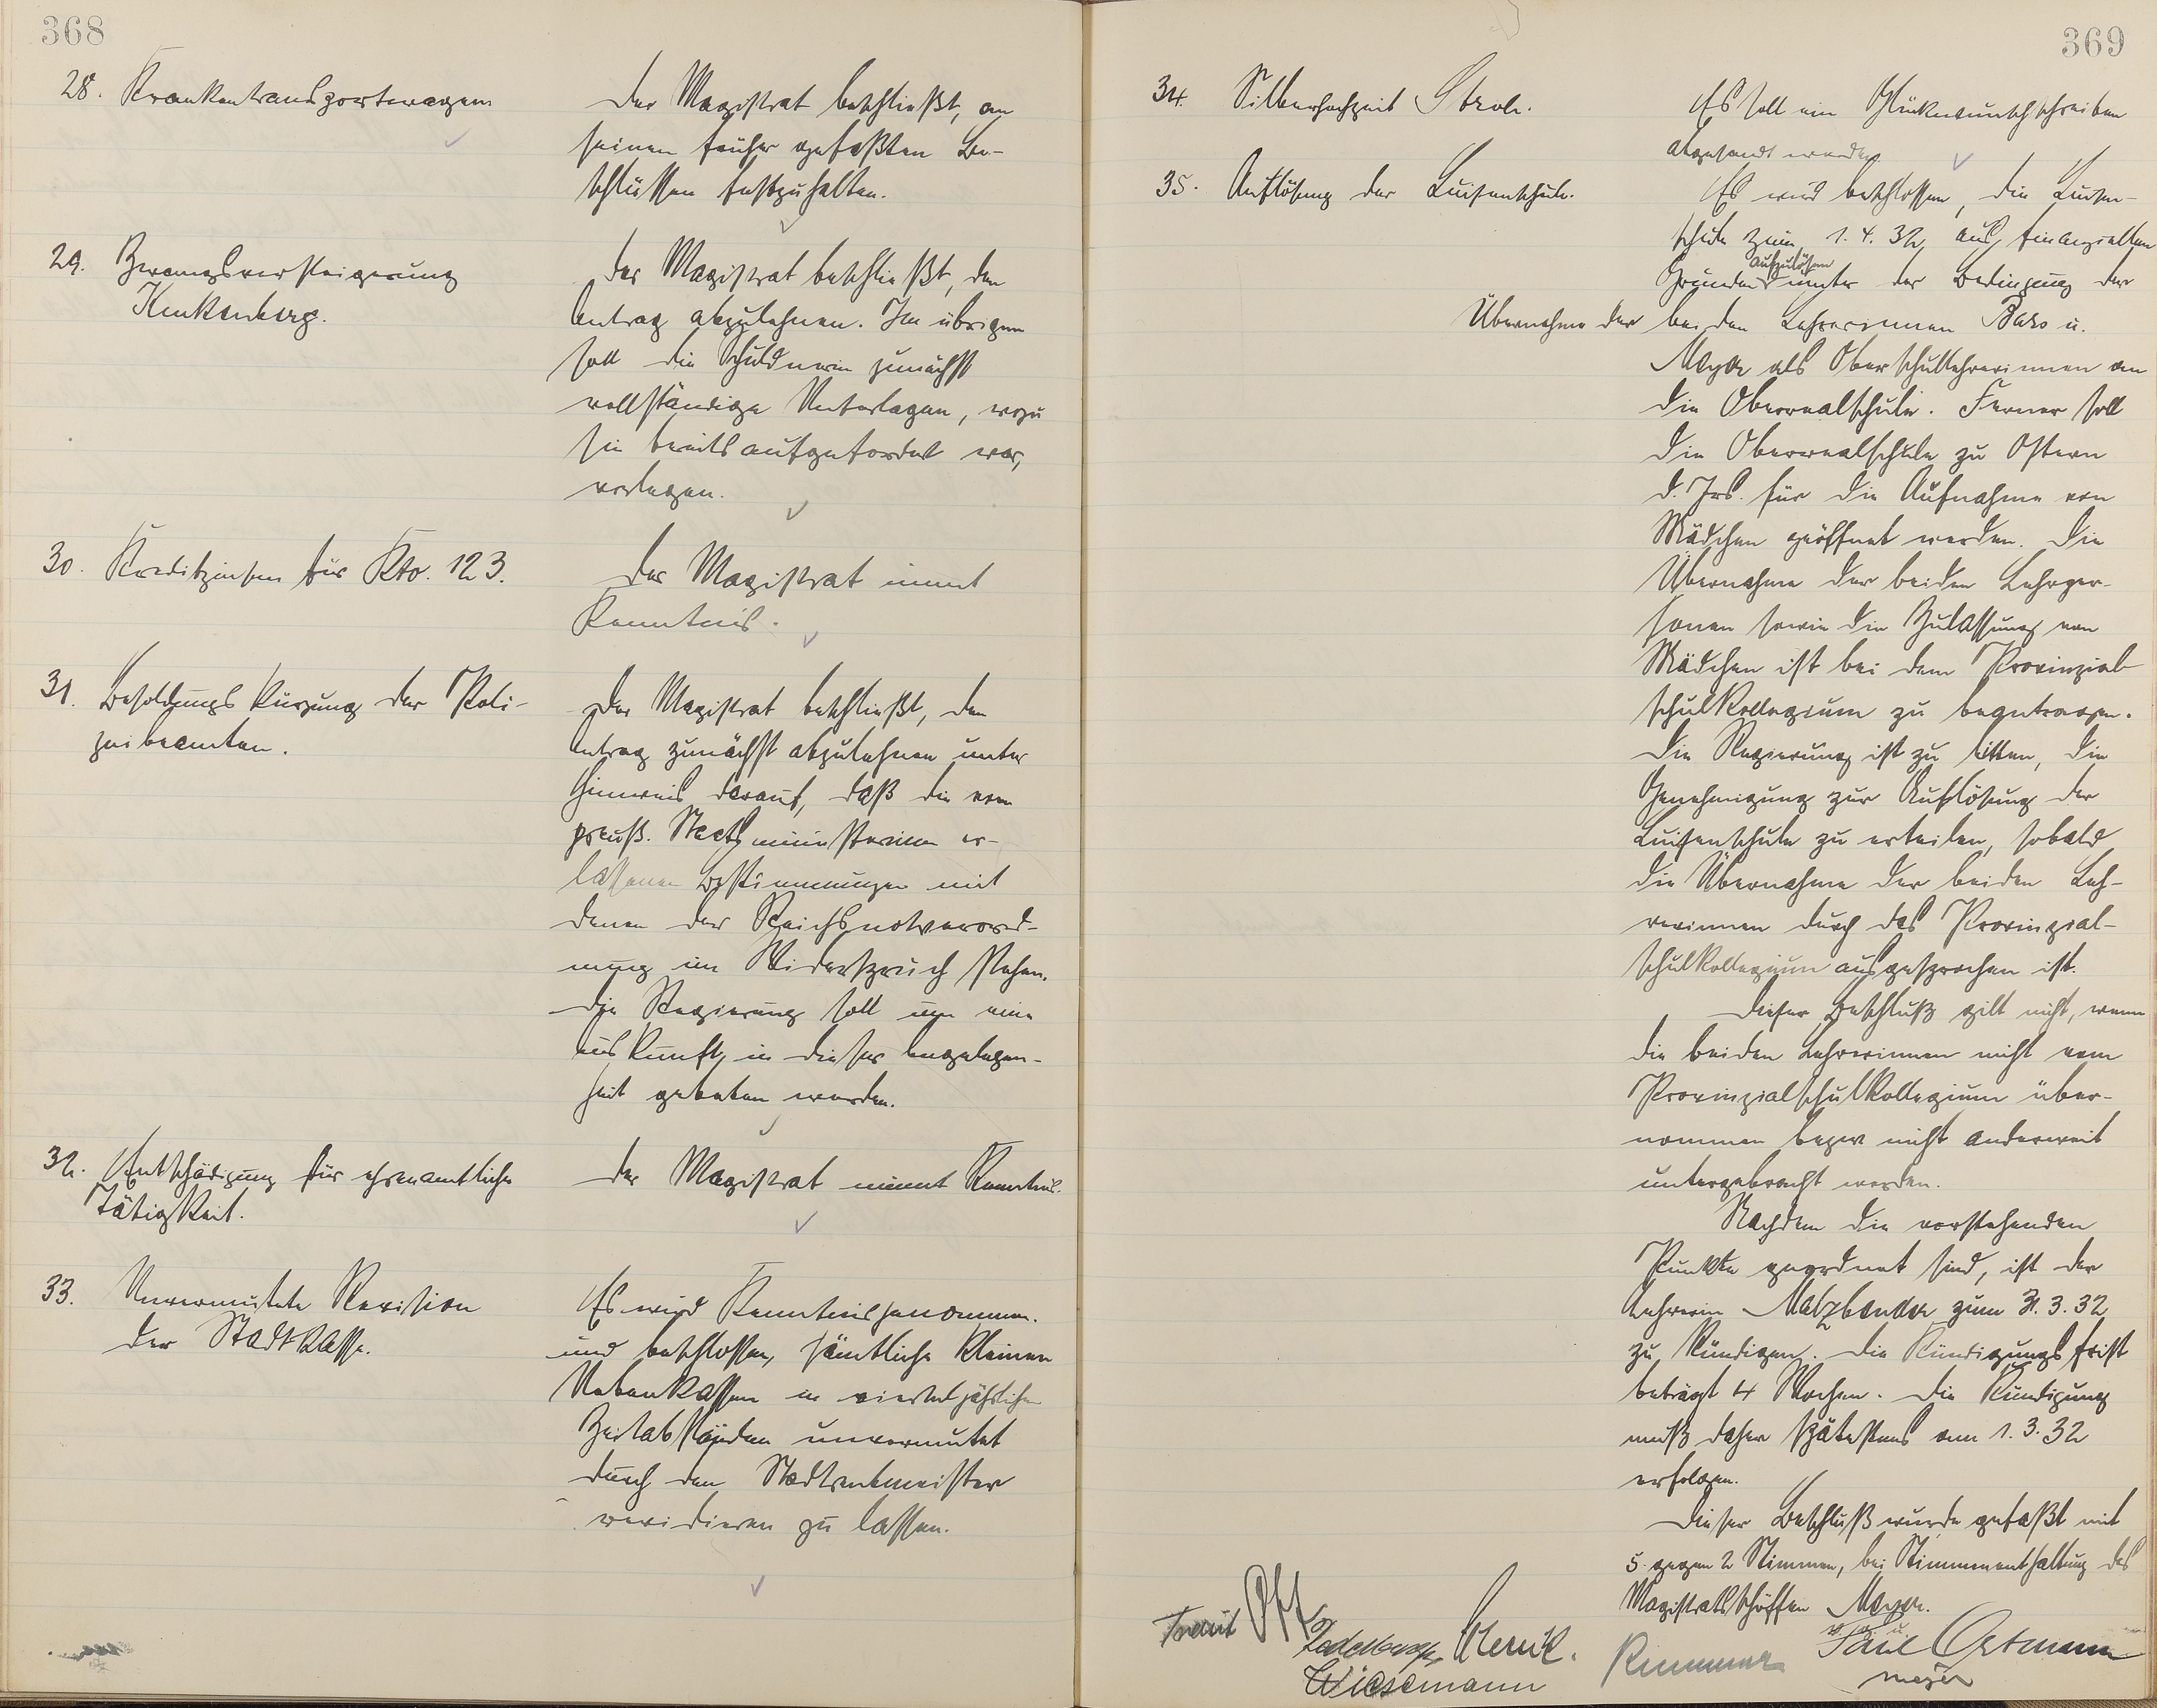 368
28. Krankentransportwagen
Der Magistrat beschließt, an
seinen früher gefaßten Be-
schlüssen festzuhalten.
29. Zwangsversteigerung
Kenkenberg.
Der Magistrat beschließt, den
Antrag abzulehnen. Im übrigen
soll die Schuldnerin zunächst
vollständige Unterlagen, wozu
sie bereits aufgefordert war,
vorlegen.
30. Kreditzinsen für Kto. 123.
Der Magistrat nimmt
Kenntnis.
31. Besoldungskürzung der Poli-
zeibeamten.
Der Magistrat beschließt, den
Antrag zunächst abzulehnen unter
Hinweis darauf, daß die vom
preuß. Staatsministerium er-
lassenen Bestimmungen mit
denen der Reichsnotverord-
nung im Widerspruch stehen.
Die Regierung soll um eine
Auskunft in dieser Angelegen-
heit gebeten werden.
32. Entschädigung für ehrenamtliche
Tätigkeit.
Der Magistrat nimmt Kenntnis.
33. Unvermutete Revision
der Stadtkasse.
Es wird Kenntnis genommen.
und beschlossen, sämtliche kleinen
Nebenkassen in vierteljährlichen
Zeitabständen unvermutet
durch den Stadtrentmeister
revidieren zu lassen.
369
34. Silberhochzeit Stroh.
Es soll ein Glückwunschschreiben
abgesandt werden.
35. Auflösung der Luisenschule.
Es wird beschlossen, die Luisen-
schule zum 1. 4. 32 aus finanziellen
Gründen aufzulösen unter der Bedingung der
Übernahme der beiden Lehrerinnen Bars u.
Meyer als Oberschullehrerinnen an
die Oberrealschule. Ferner soll
die Oberrealschule zu Ostern
d. Jrs. für die Aufnahme von
Mädchen geöffnet werden. Die
Übernahme der beiden Lehrper-
sonen sowie die Zulassung von
Mädchen ist bei dem Provinzial-
schulkollegium zu beantragen.
Die Regierung ist zu bitten, die
Genehmigung zur Auflösung der
Luisenschule zu erteilen, sobald
die Übernahme der beiden Leh-
rerinnen durch das Provinzial-
schulkollegium ausgesprochen ist.
Dieser Beschluß gilt nicht, wenn
die beiden Lehrerinnen nicht vom
Provinzialschulkollegium über-
nommen bezw nicht anderweit
untergebracht werden.
Nachdem die vorstehenden
Punkte geordnet sind, ist der
Lehrerin Malzbender zum 31. 3. 32
zu kündigen. Die Kündigungsfrist
beträgt 4 Wochen. Die Kündigung
muß daher spätestens am 1. 3. 32
erfolgen.
Dieser Beschluß wurde gefaßt mit
5 gegen 2 Stimmen, bei Stimmenthaltung des
Magistratsschöffen Meyer.
Ott
Wiesemann
Paul Ortmann
Meyer